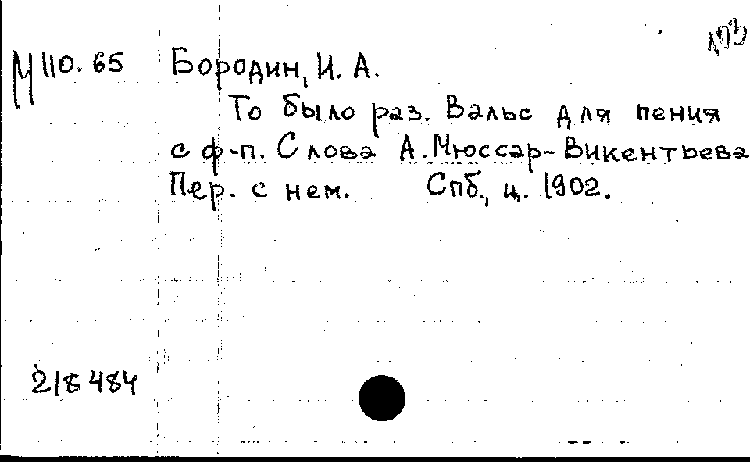 М 110.65 Бородин, И. А.
То было раз. Вальс для пения
с ф-п. Слова А. Мюссар-Викентьева
Пер. с нем. Спб., ц. 1902.
218484